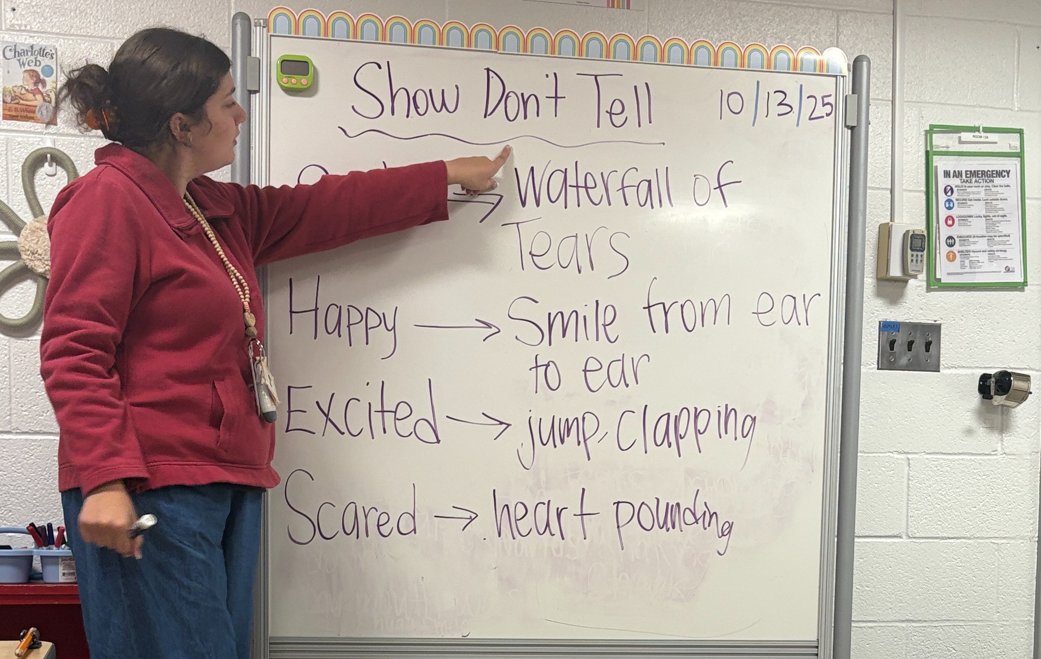 Charlotte's
Web
Show Don't Tell 10/13/25
→ Waterfall of
Tears
Happy → Smile from ear
to ear
Excited → jump, clapping
Scared → heart pounding
IN AN EMERGENCY
TAKE ACTION